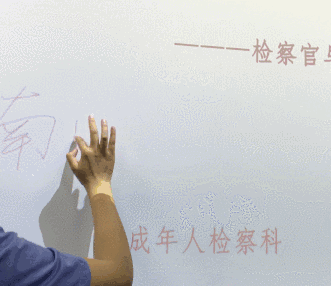 ———检察官与
南
成年人检察科